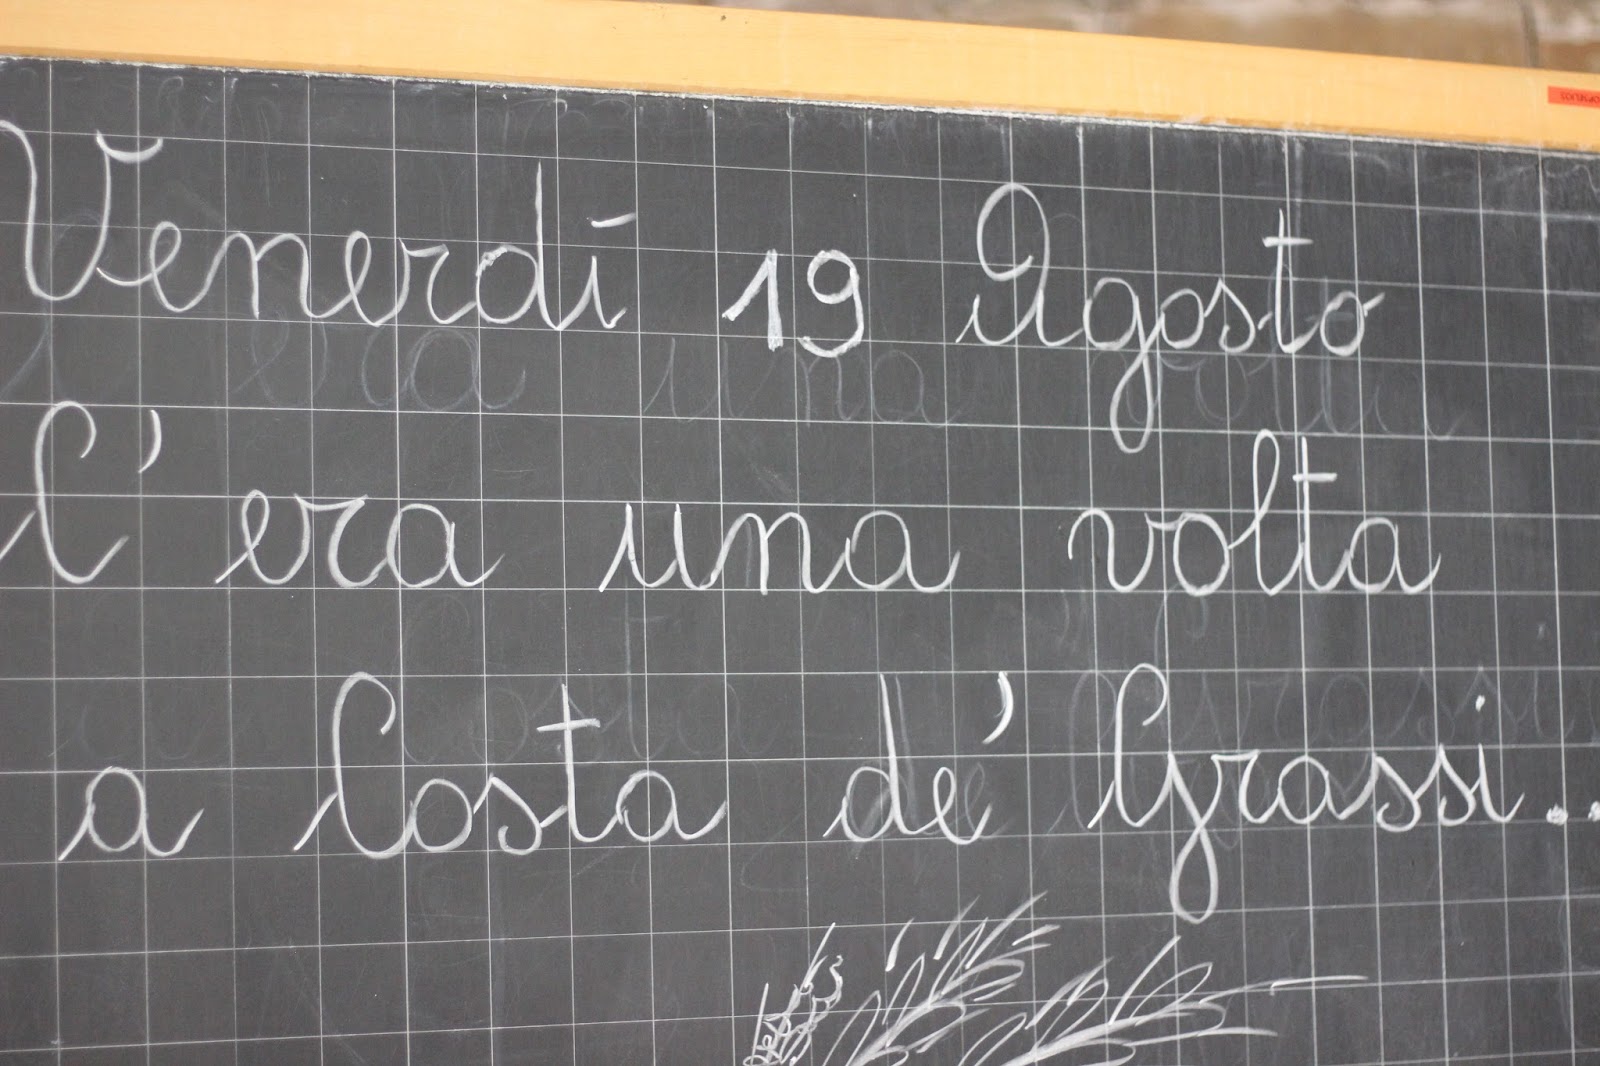 Venerdí 19 Agosto
C'era una volta
a Costa de' Grassi..